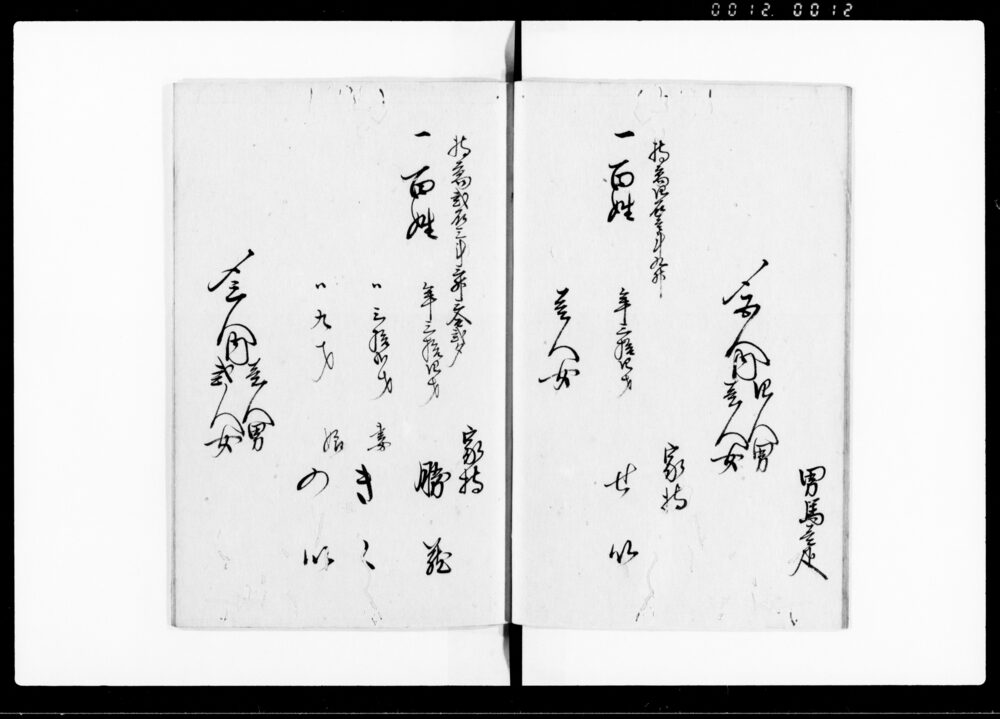 0012. 0012
男馬壱疋
〆五人
内四人男
壱人女
持高四石壱斗九升
家持
一百姓
壱人女
持高弐石三斗六升六合弐夕
家持
一百姓 年三拾四才 勝蔵
〃三拾 才 妻 きく
〃九才 娘 の
〆三人
内壱人男
弐人女